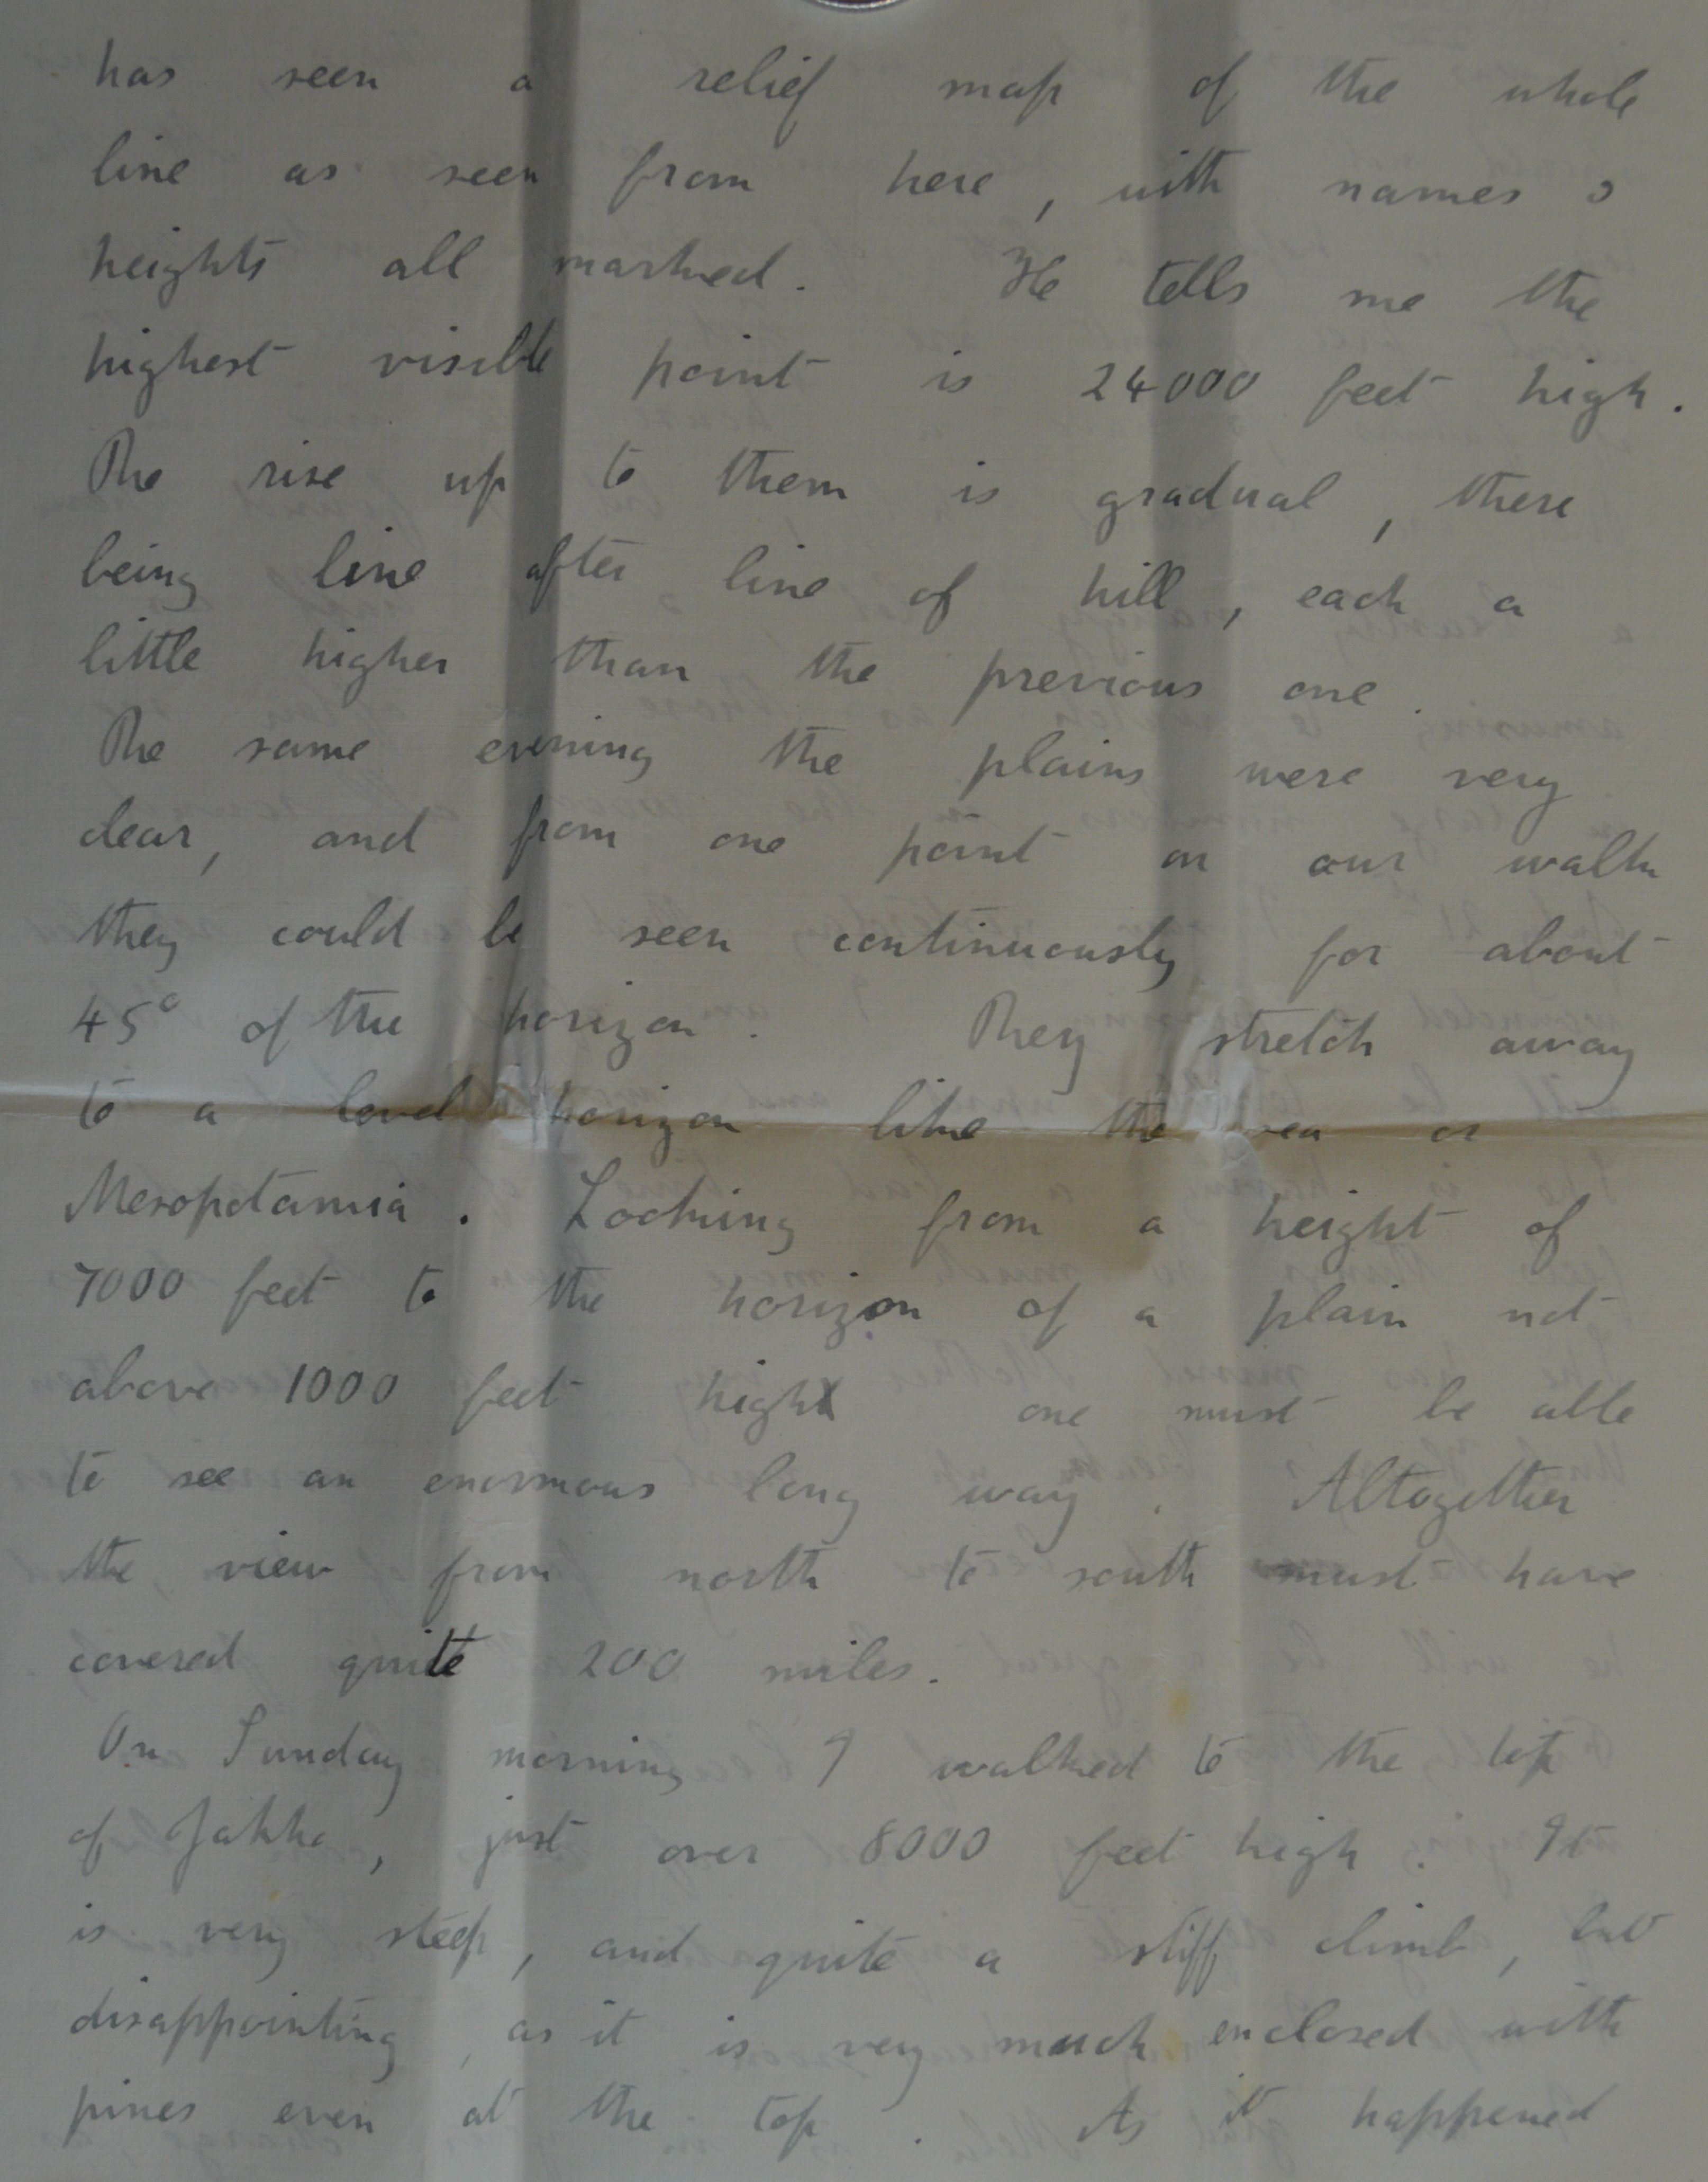 has seen a relief map of the whole
line as seen from here, with names &
heights all marked. He tells me the
highest visible point is 24000 feet high.
The rise up to them is gradual, there
being line after line of hill, each a
little higher than the previous one.
The same evening the plains were very
clear, and from one point on our walk
they could be seen continuously for about
45° of the horizon. They stretch away
to a level horizon like the sea or
Mesopotamia. Looking from a height of
7000 feet to the horizon of a plain not
above 1000 feet high one must be able
to see an enormous long way. Altogether
the view from north to south must have
covered quite 200 miles.
On Sunday morning I walked to the top
of Jakko, just over 8000 feet high. It
is very steep, and quite a stiff climb, but
disappointing, as it is very much enclosed with
pines even at the top. As it happened